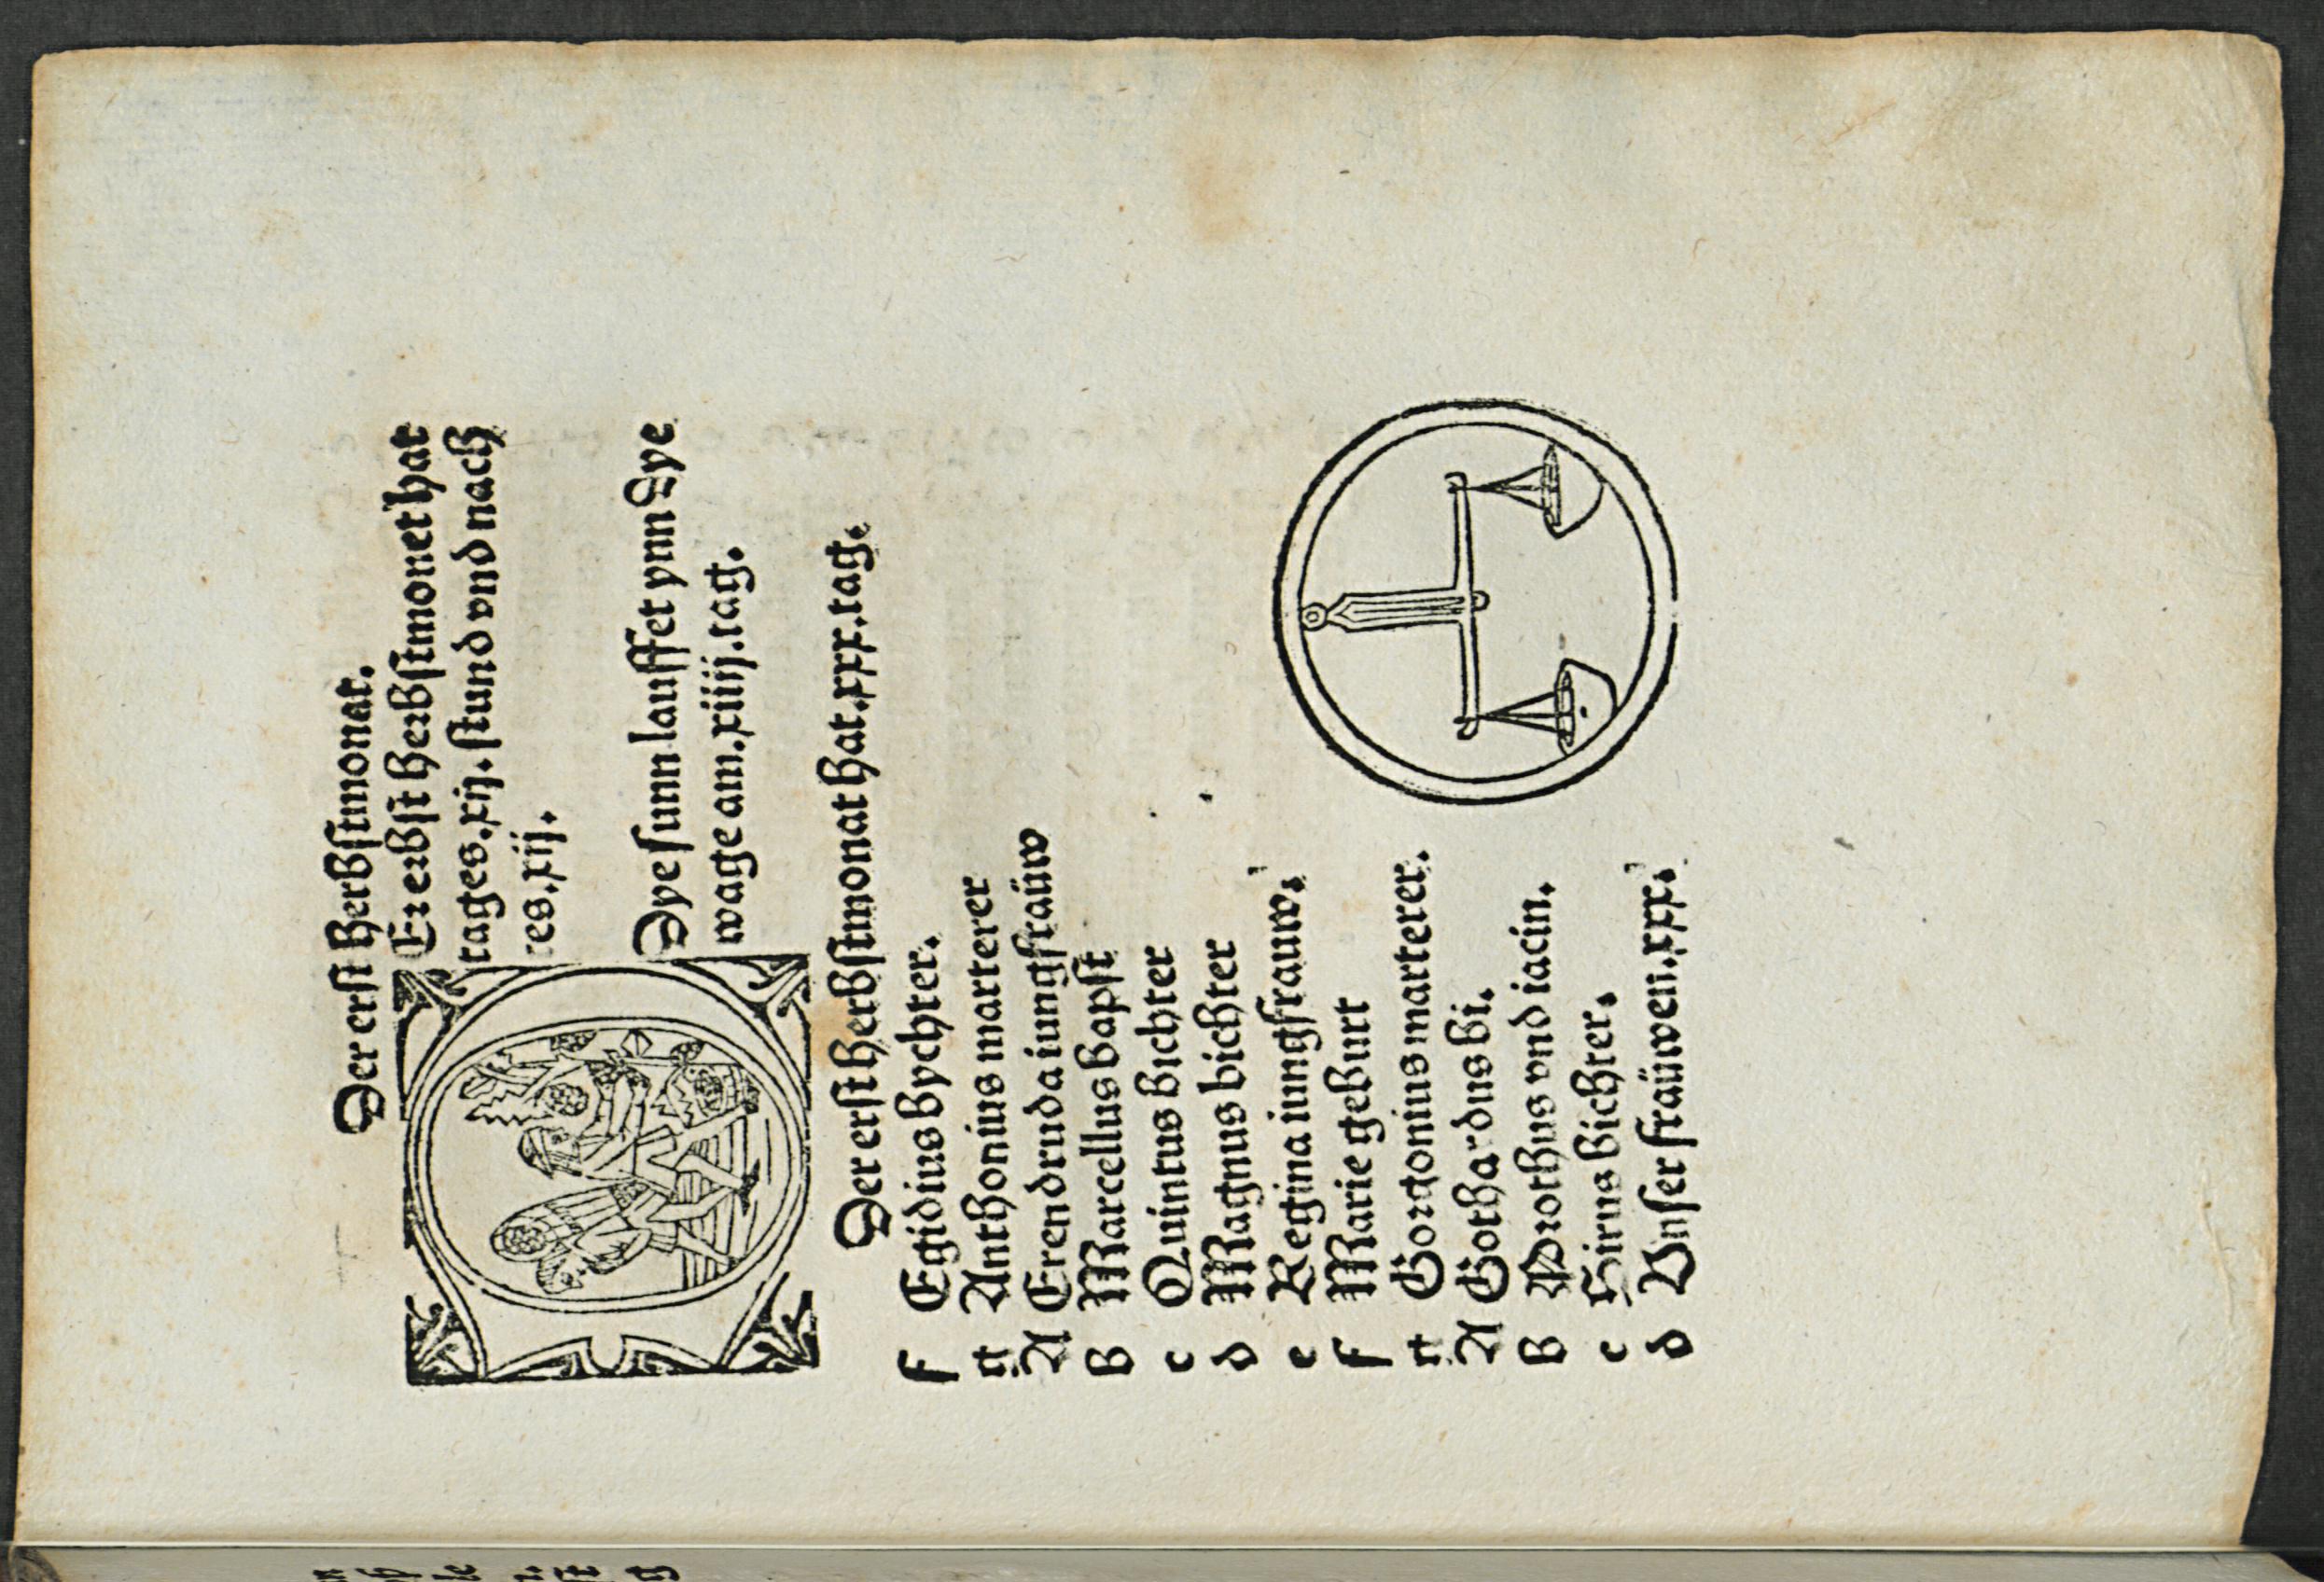 Der erst Herbstmonat.
Er erbst herbstmonet hat
tages .xij. stund vnd nach
res .xij.
Dye sunn lauffet ynn dye
wage am .xiiij. tag.
Der erst Herbstmonat hat .xxx. tag.
f Egidius bychter.
g Anthonius marterer
A Erendruda iungfraüw
b Marcellus bapst
c Quintus bichter
d Magnus bichter
e Regina iungfrauw.
f Marie geburt
g Gorgonius marterer.
A Gothardus bi.
b Prothus vnd iacin.
c Sirus bichter.
d Vnser fraüwen .xxx.